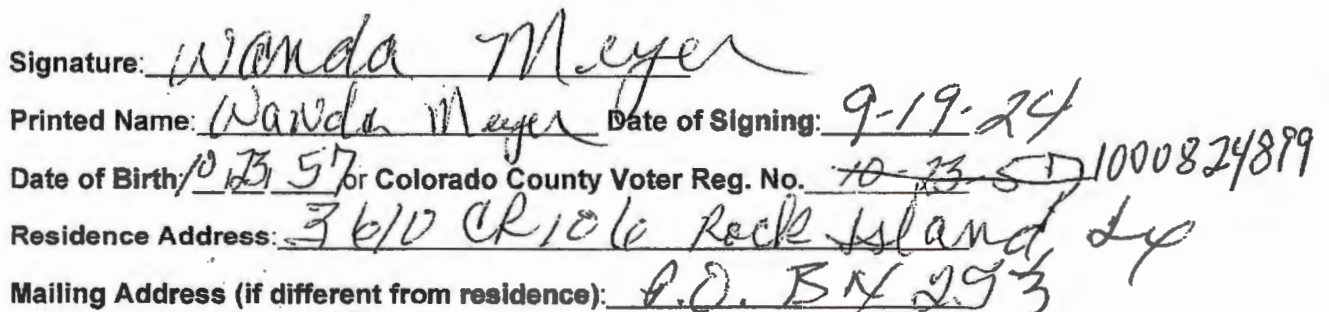 Signature: Wanda Meyer
Printed Name: Wanda Meyer Date of Signing: 9-19-24
Date of Birth 10/23/57 or Colorado County Voter Reg. No. 10-23-57 1000824899
Residence Address: 3610 CR 106 Rock Island, Tx
Mailing Address (if different from residence): P.O. BX 293